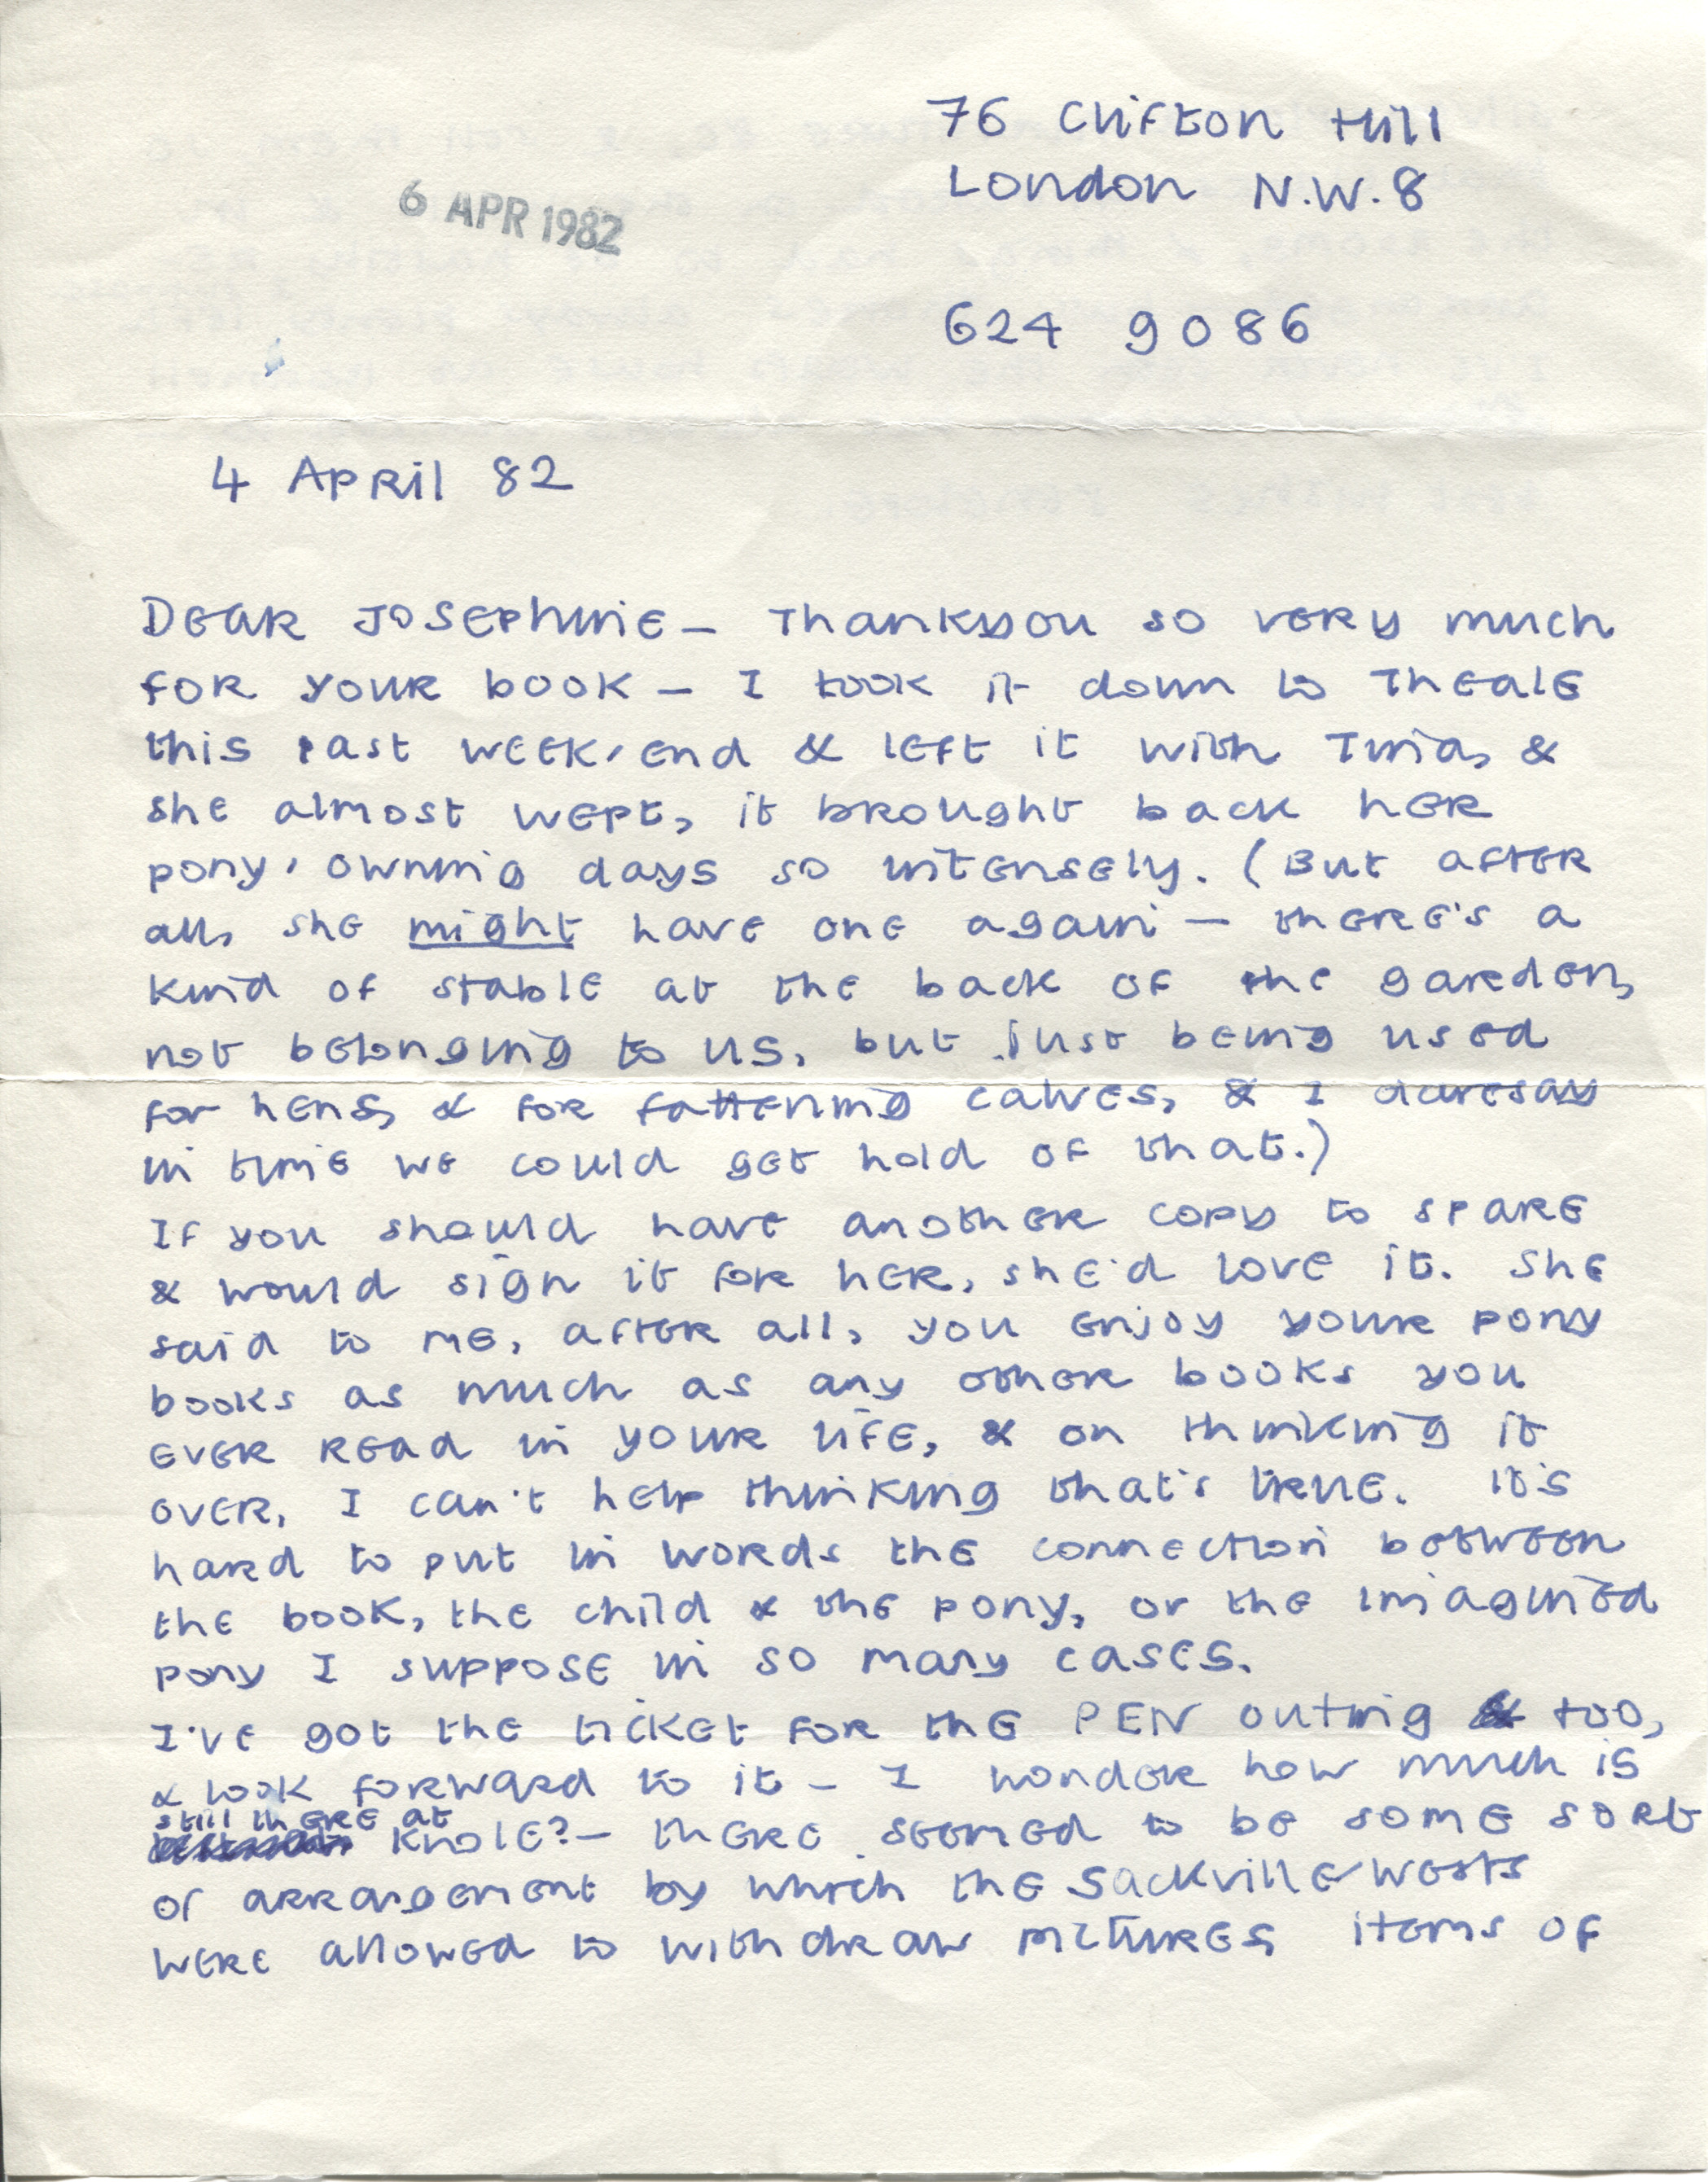 76 Clifton Hill
London N.W.8
6 APR 1982
624 9086
4 April 82
Dear Josephine – Thankyou so very much
for your book – I took it down to Theale
this past week-end & left it with Tina, &
she almost wept, it brought back her
pony-owning days so intensely. (But after
all, she might have one again – there's a
kind of stable at the back of the garden,
not belonging to us, but just being used
for hens, & for fattening calves, & I daresay
in time we could get hold of that.)
If you should have another copy to spare
& would sign it for her, she'd love it. She
said to me, after all, you enjoy your pony
books as much as any other books you
ever read in your life, & on thinking it
over, I can't help thinking that's true. It's
hard to put in words the connection between
the book, the child & the pony, or the imagined
pony I suppose in so many cases.
I've got the ticket for the PEN outing too,
& look forward to it – I wonder how much is
still there at
Knole? – there seemed to be some sort
of arrangement by which the Sackville-Wests
were allowed to withdraw pictures, items of